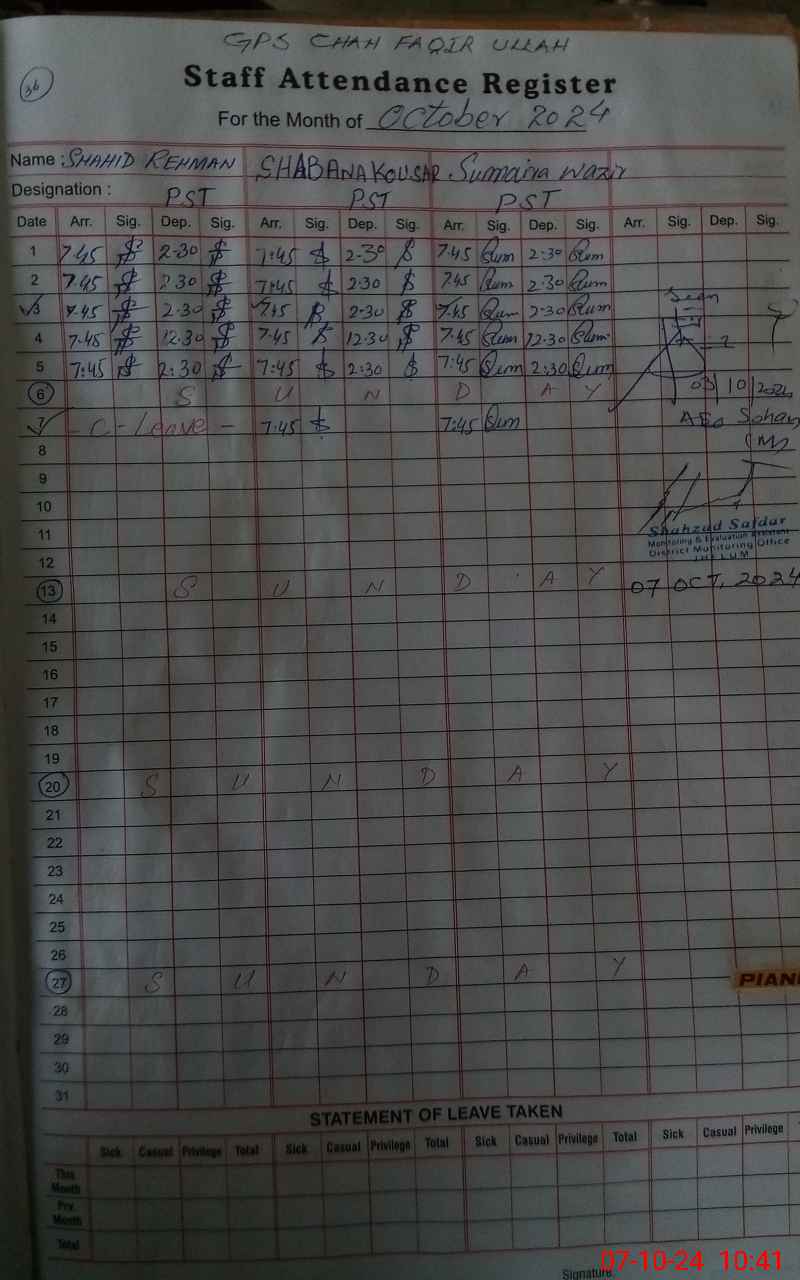 GPS CHAH FAQIR ULLAH
36
Staff Attendance Register
For the Month of October 2024
Name : SHAHID REHMAN SHABANA KOUSAR Sumaira Wazir
Designation : PST PST PST
Date Arr. Sig. Dep. Sig. Arr. Sig. Dep. Sig. Arr. Sig. Dep. Sig. Arr. Sig. Dep. Sig.
1 7.45 2.30 7:45 2.30 7.45 2:30
2 7.45 2.30 7:45 2:30 7.45 2.30
3 7.45 2.30 7:45 2.30 7.45 2.30 Seen
4 7.45 12.30 7.45 12.30 7.45 12.30
5 7:45 2:30 7:45 2:30 7:45 2:30
6 S U N D A Y 03/10/2024
7 - C - Leave - 7:45 7:45 AEO Sohan
8 (M)
9
10
11 Shahzad Safdar
Monitoring & Evaluation Assistant
12 District Monitoring Office
JHELUM
13 S U N D A Y 07 OCT, 2024
14
15
16
17
18
19
20 S U N D A Y
21
22
23
24
25
26
27 S U N D A Y PIAN
28
29
30
31
STATEMENT OF LEAVE TAKEN
Sick Casual Privilege Total Sick Casual Privilege Total Sick Casual Privilege Total Sick Casual Privilege
This Month
Prv. Month
Total
Signature
07-10-24 10:41